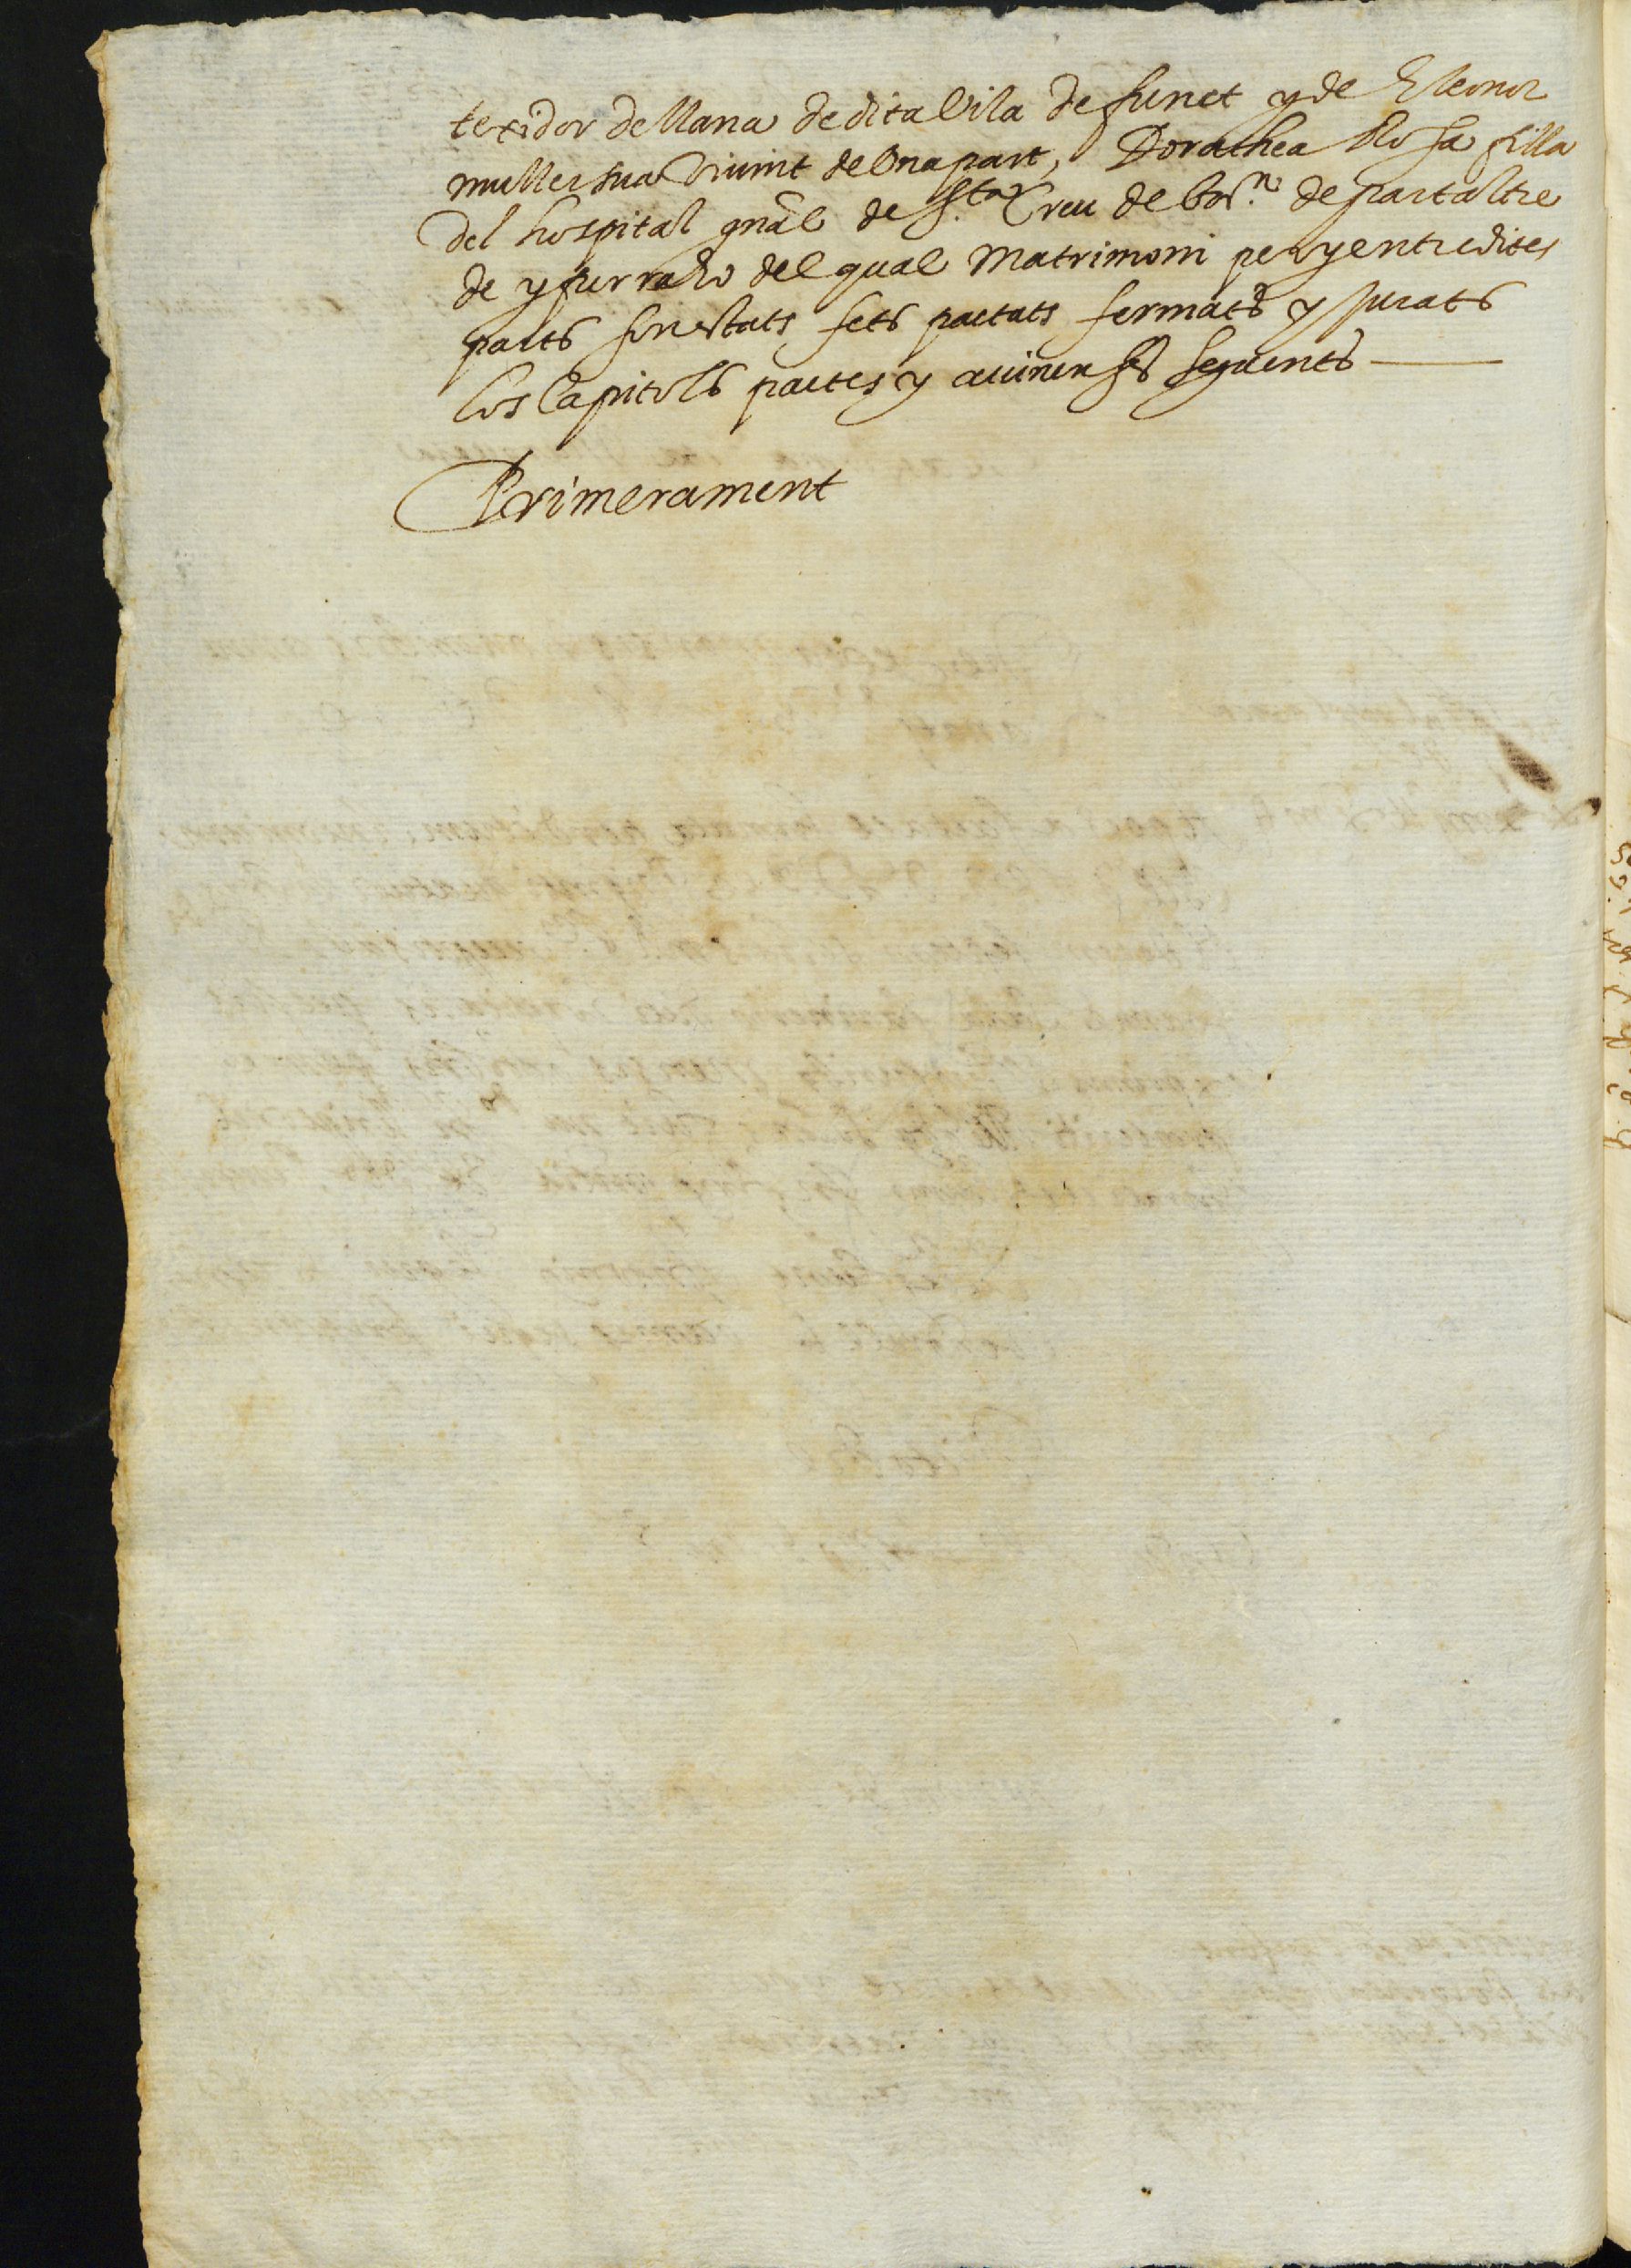 texidor de llana de dita Vila defunct y de Eleonor
muller sua vivint de Una part, Dorathea Rosa filla
del hospital gnãl de S.ta Creu de Bar.na de part altre
de y per raho del qual Matrimoni per y entre dites
parts son estats fets pactats fermats y jurats
los Capitols pactes y avinenses seguents
Primerament